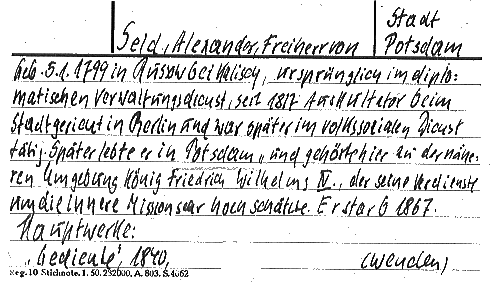 Stadt
Seld, Alexander, Freiherr von Potsdam
Geb. 5.1.1799 in bei Kalisch, ursprünglich im diplo-
matischen Verwaltungsdienst, seit 1817 Auskultator beim
Stadtgericht in Berlin und war später im volkssozialen Dienst
tätig. Später lebte er in Potsdam, und gehörte hier zu der nähe-
ren Umgebung König Friedrich Wilhelms IV., der seine Verdienste
um die innere Mission sehr hoch schätzte. Er starb 1867.
Hauptwerke:
"Gedichte", 1840,
(wenden)
Reg. 10 Stichnote. I. 50. 232000. A. 803. S. 4062